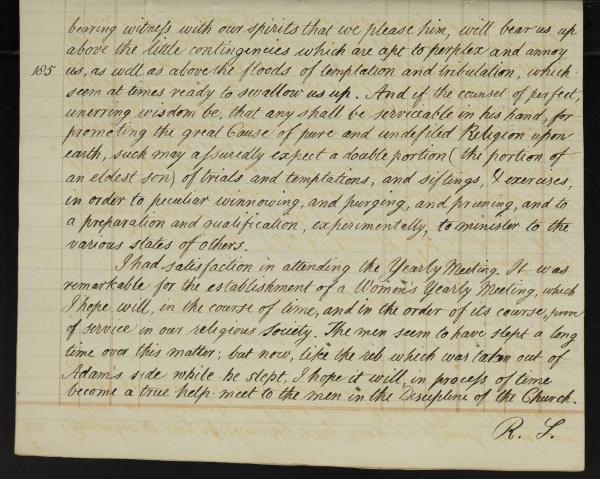 bearing witness with our spirits that we please him, will bear us up
above the little contingencies which are apt to perplex and annoy
185 us, as well as above the floods of temptation and tribulation, which
seem at times ready to swallow us up. And if the counsel of perfect,
unerring wisdom be, that any shall be serviceable in his hand, for
promoting the great Cause of pure and undefiled Religion upon
earth, such may assuredly expect a double portion (the portion of
an eldest son) of trials and temptations, and siftings, & exercises,
in order to peculiar winnowing, and purging, and pruning, and to
a preparation and qualification, experimentally, to minister to the
various states of others.
I had satisfaction in attending the Yearly Meeting. It was
remarkable for the establishment of a Women's Yearly Meeting, which
I hope will, in the course of time, and in the order of its course, prove
of service in our religious Society. The men seem to have slept a long
time over this matter; but now, like the rib which was taken out of
Adam's side while he slept, I hope it will, in process of time
become a true help-meet to the men in the Discipline of the Church.
R. S.